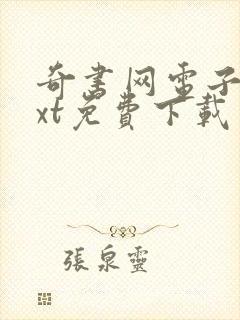 奇書网電子
xt免費下載
張泉靈